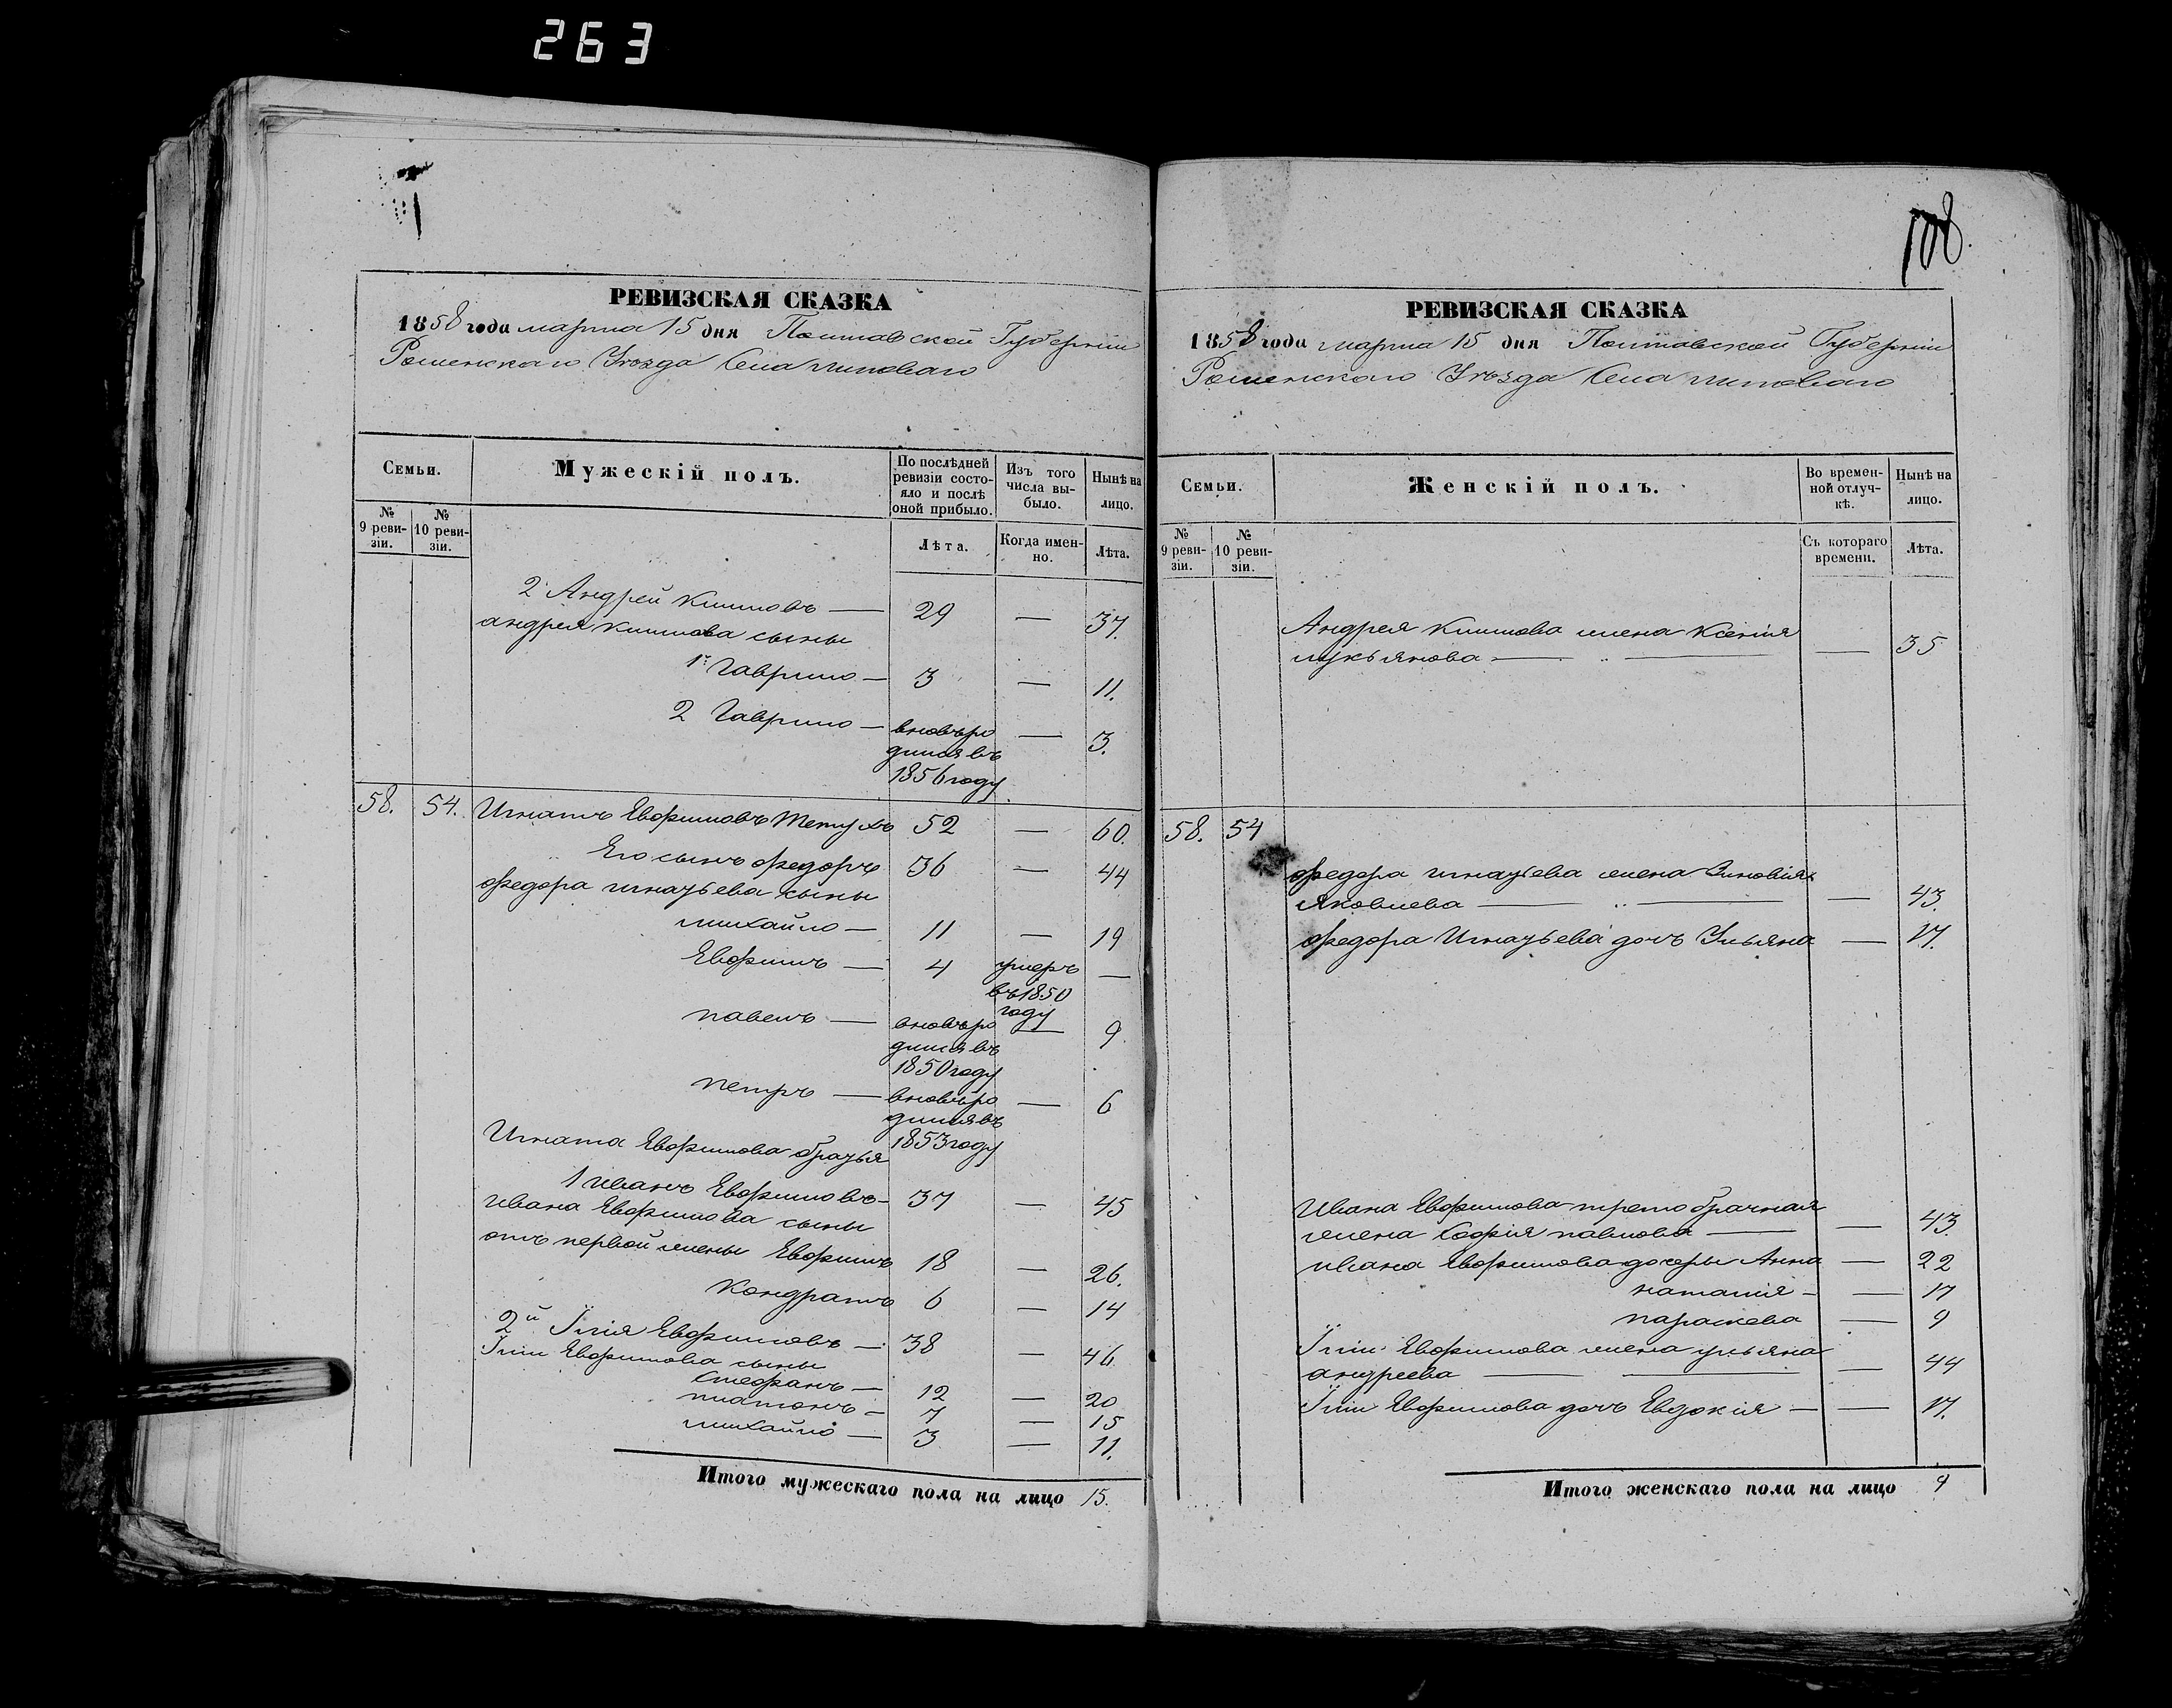 263
108.
РЕВИЗСКАЯ СКАЗКА
1858 года марта 15 дня Полтавской Губерніи
Роменскаго Уѣзда Села Липоваго
Семьи.
Мужескій полъ.
По послѣдней ревизіи состо-
яло и послѣ
оной прибыло.
Изъ того
числа вы-
было.
Нынѣ на
лицо.
№
9 реви-
зіи.
№
10 реви-
зіи.
Лѣта.
Когда имен-
но.
Лѣта.
2 Андрей Климовъ — 29 — 37.
андрея климова сыны
1й Гаврило — 3 — 11.
2 Гаврило — вновь ро — 3.
дился въ
1856 году
58. 54. Игнатъ Евфимовъ 52 — 60.
Его сынъ федоръ 36 — 44
федора игнатьева сыны
михайло — 11 — 19
Евфимъ — 4 умеръ —
въ 1850
году
павелъ — вновь ро — 9
дился въ
1850 году
петръ — вновь ро — 6
дился въ
1853 году
Игната Евфимова братья
1 иванъ Евфимовъ — 37 — 45
ивана Евфимова сыны
отъ первой жены Евфимъ 18 — 26.
Кондратъ 6 — 14
2й Ілія Евфимовъ — 38 — 46
Іліи Евфимова сыны
Стефанъ — 12 — 20
платонъ — 7 — 15
михайло — 3 — 11.
Итого мужескаго пола на лицо 15.
РЕВИЗСКАЯ СКАЗКА
1858 года марта 15 дня Полтавской Губерніи
Роменскаго Уѣзда Села Липоваго
Семьи.
Женскій полъ.
Во времен-
ной отлуч-
кѣ.
Нынѣ на
лицо.
№
9 реви-
зіи.
№
10 реви-
зіи.
Съ котораго
времени.
Лѣта.
Андрея Климова жена Ксенія
лукьянова — — 35
58. 54
федора игнатьева жена Зиновія
Яковлева — — 43.
федора Игнатьева дочь Ульяна — 17.
Ивана Евфимова третобрачная
жена Софія павлова — — 43.
ивана Евфимова дочери Анна — 22
наталія — — 17
параскева — 9
Іліи Евфимова жена ульяна
андреева — — 44
Іліи Евфимова дочь Евдокія — — 17.
Итого женскаго пола на лицо 9